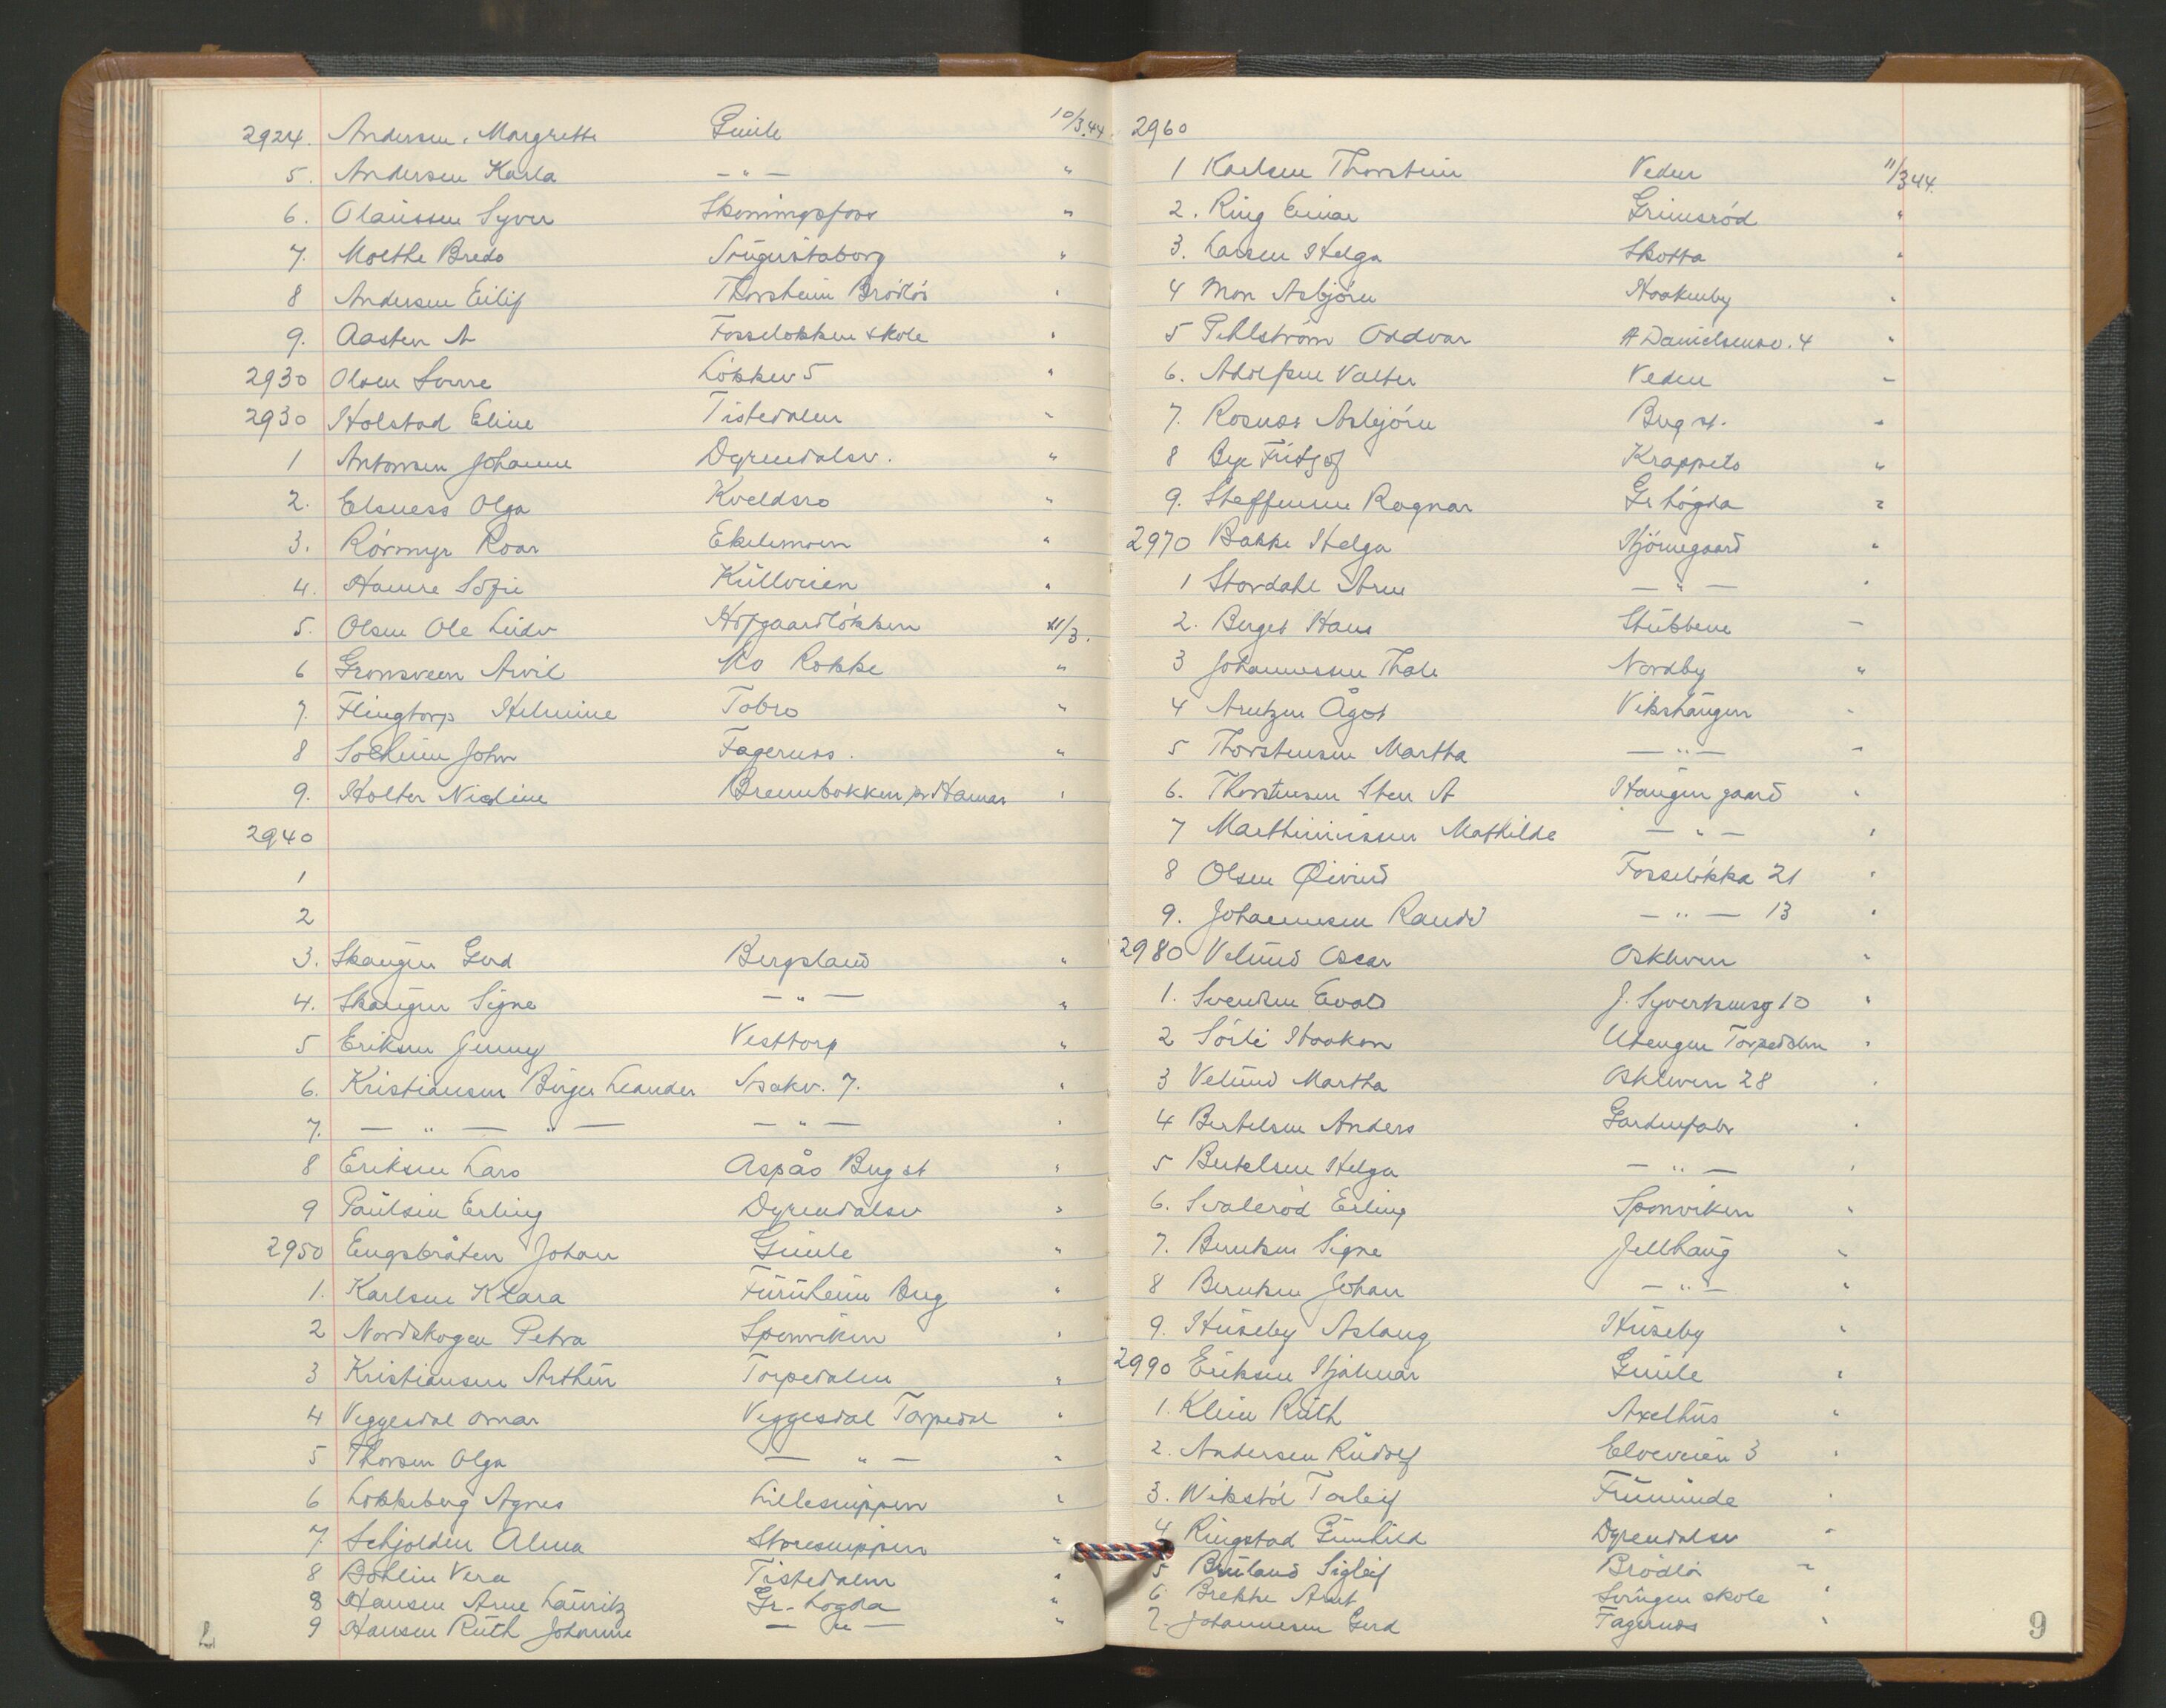 2924. Andersen, Margrethe Gimle 10/3.44
5. Andersen Karla — " — "
6. Olaussen Syver Skoningsfoss "
7. Molthe Bredo Augustaborg "
8 Andersen Eilif Thorsheim Brödlös "
9. Aasten A Fosseløkken skole "
2930 Olsen Sverre Løkkev 5 "
2930 Holstad Eline Tistedalen "
1 Antonsen Johanne Dyrendalsv. "
2. Elsness Olga Kveldsro "
3. Rörmyr Roar Ekelemoen "
4. Hamre Sofie Küllveien "
5. Olsen Ole Ludv Hofgaardløkken 11/3.
6 Gronsveen Arvil Mo Rokke "
7. Flingtorp Helmine Tobro "
8 Solheim John Fagernes. "
9. Holter Nicoline Brennbakken pr Hamar "
2940
1
2
3. Skaugen Gerd Bergsland "
4. Skaugen Signe — " — "
5 Eriksen Jenny Vesttorp "
6. Kristiansen Birger Leander Isakv. 7. "
7. — " — " — — " — "
8 Eriksen Lars Aspås Berg st "
9 Paulsen Erling Dyrendalsv "
2950 Engsbråten Johan Gimle "
1. Karlsen Klara Furuheim Berg "
2 Nordskogen Petra Sponviken "
3 Kristiansen Arthur Torpedalen "
4 Veggesdal Ornar Veggesdal Torpedal "
5 Thorsen Olga — " — "
6 Løkkeberg Agnes Lillesnippen "
7. Schjolden Alma Storesnippen "
8 Bohlin Vera Tistedalen "
8 Hansen Arne Lauritz Gr. høgda "
9 Hansen Ruth Johanne — " — "
2
2960
1 Karlsen Thorstein Veden 11/3 44.
2. Ring Einar Grimsröd "
3. Larsen Helga Skotta "
4 Mon Asbjörn Haakenby "
5 Pehlström Oddvar A Danielsensv. 4 "
6. Adolfsen Valter Veden "
7. Rosnes Asbjörn Berg st. "
8 Bye Fritjof Krappeto "
9. Steffensen Ragnar Gr högda "
2970 Bakke Helga Hjörnegaard "
1 Stordahl Arne — " — "
2. Berget Hans Stubbene "
3 Johannessen Thale Nordby "
4 Arntzen Ågot Vikshaugen "
5 Thorstensen Martha — " — "
6. Thorstensen Sten A Haugen gaard "
7 Marthiniussen Mathilde — " — "
8 Olsen Øivind Fosseløkka 21 "
9. Johannesen Randi — " — 13 "
2980 Velund Oscar Oskleven "
1. Svendsen Evald J. Syvertsensg 10 "
2 Sörli Haakon Utengen Torpedalen "
3 Velund Martha Oskleven 28 "
4 Bertelsen Anders Gardinfabr "
5 Bertelsen Helga — " — "
6. Svaleröd Erling Sponviken "
7. Berntsen Signe Jellhaug "
8 Berntsen Johan — " — "
9. Huseby Aslaug Huseby "
2990 Eriksen Hjalmar Gimle "
1. Klein Ruth Axelhus "
2. Andersen Rudolf Elveveien 3 "
3. Wikstöl Torleif "
4 Ringstad Gunhild Dyrendalsv "
5 Bruland Sigleif Brödlös "
6 Brekke Arnt Svingen skole "
7. Johannesen Gerd Fagernes "
9